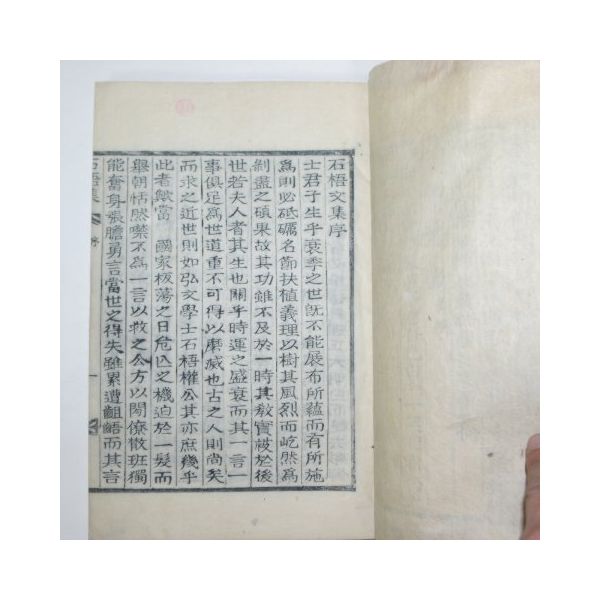 石梧文集序
士君子生乎衰季之世旣不能展布所蘊而有所施
爲則必砥礪名節扶植義理以樹其風烈而屹然爲
剝盡之碩果故其功雖不及於一時其敎實被於後
世若夫人者其生也關乎時運之盛衰而其一言一
事俱足爲世道重不可得以磨滅也古之人則尙矣
而求之近世則如弘文學士石梧權公其亦庶幾乎
此者歟當 國家板蕩之日危亡之機迫於一髮而
擧朝恬然噤不爲一言以救之公方以閑僚散班獨
能奮身張膽勇言當世之得失雖累遭齟齬而其言
石梧集 序